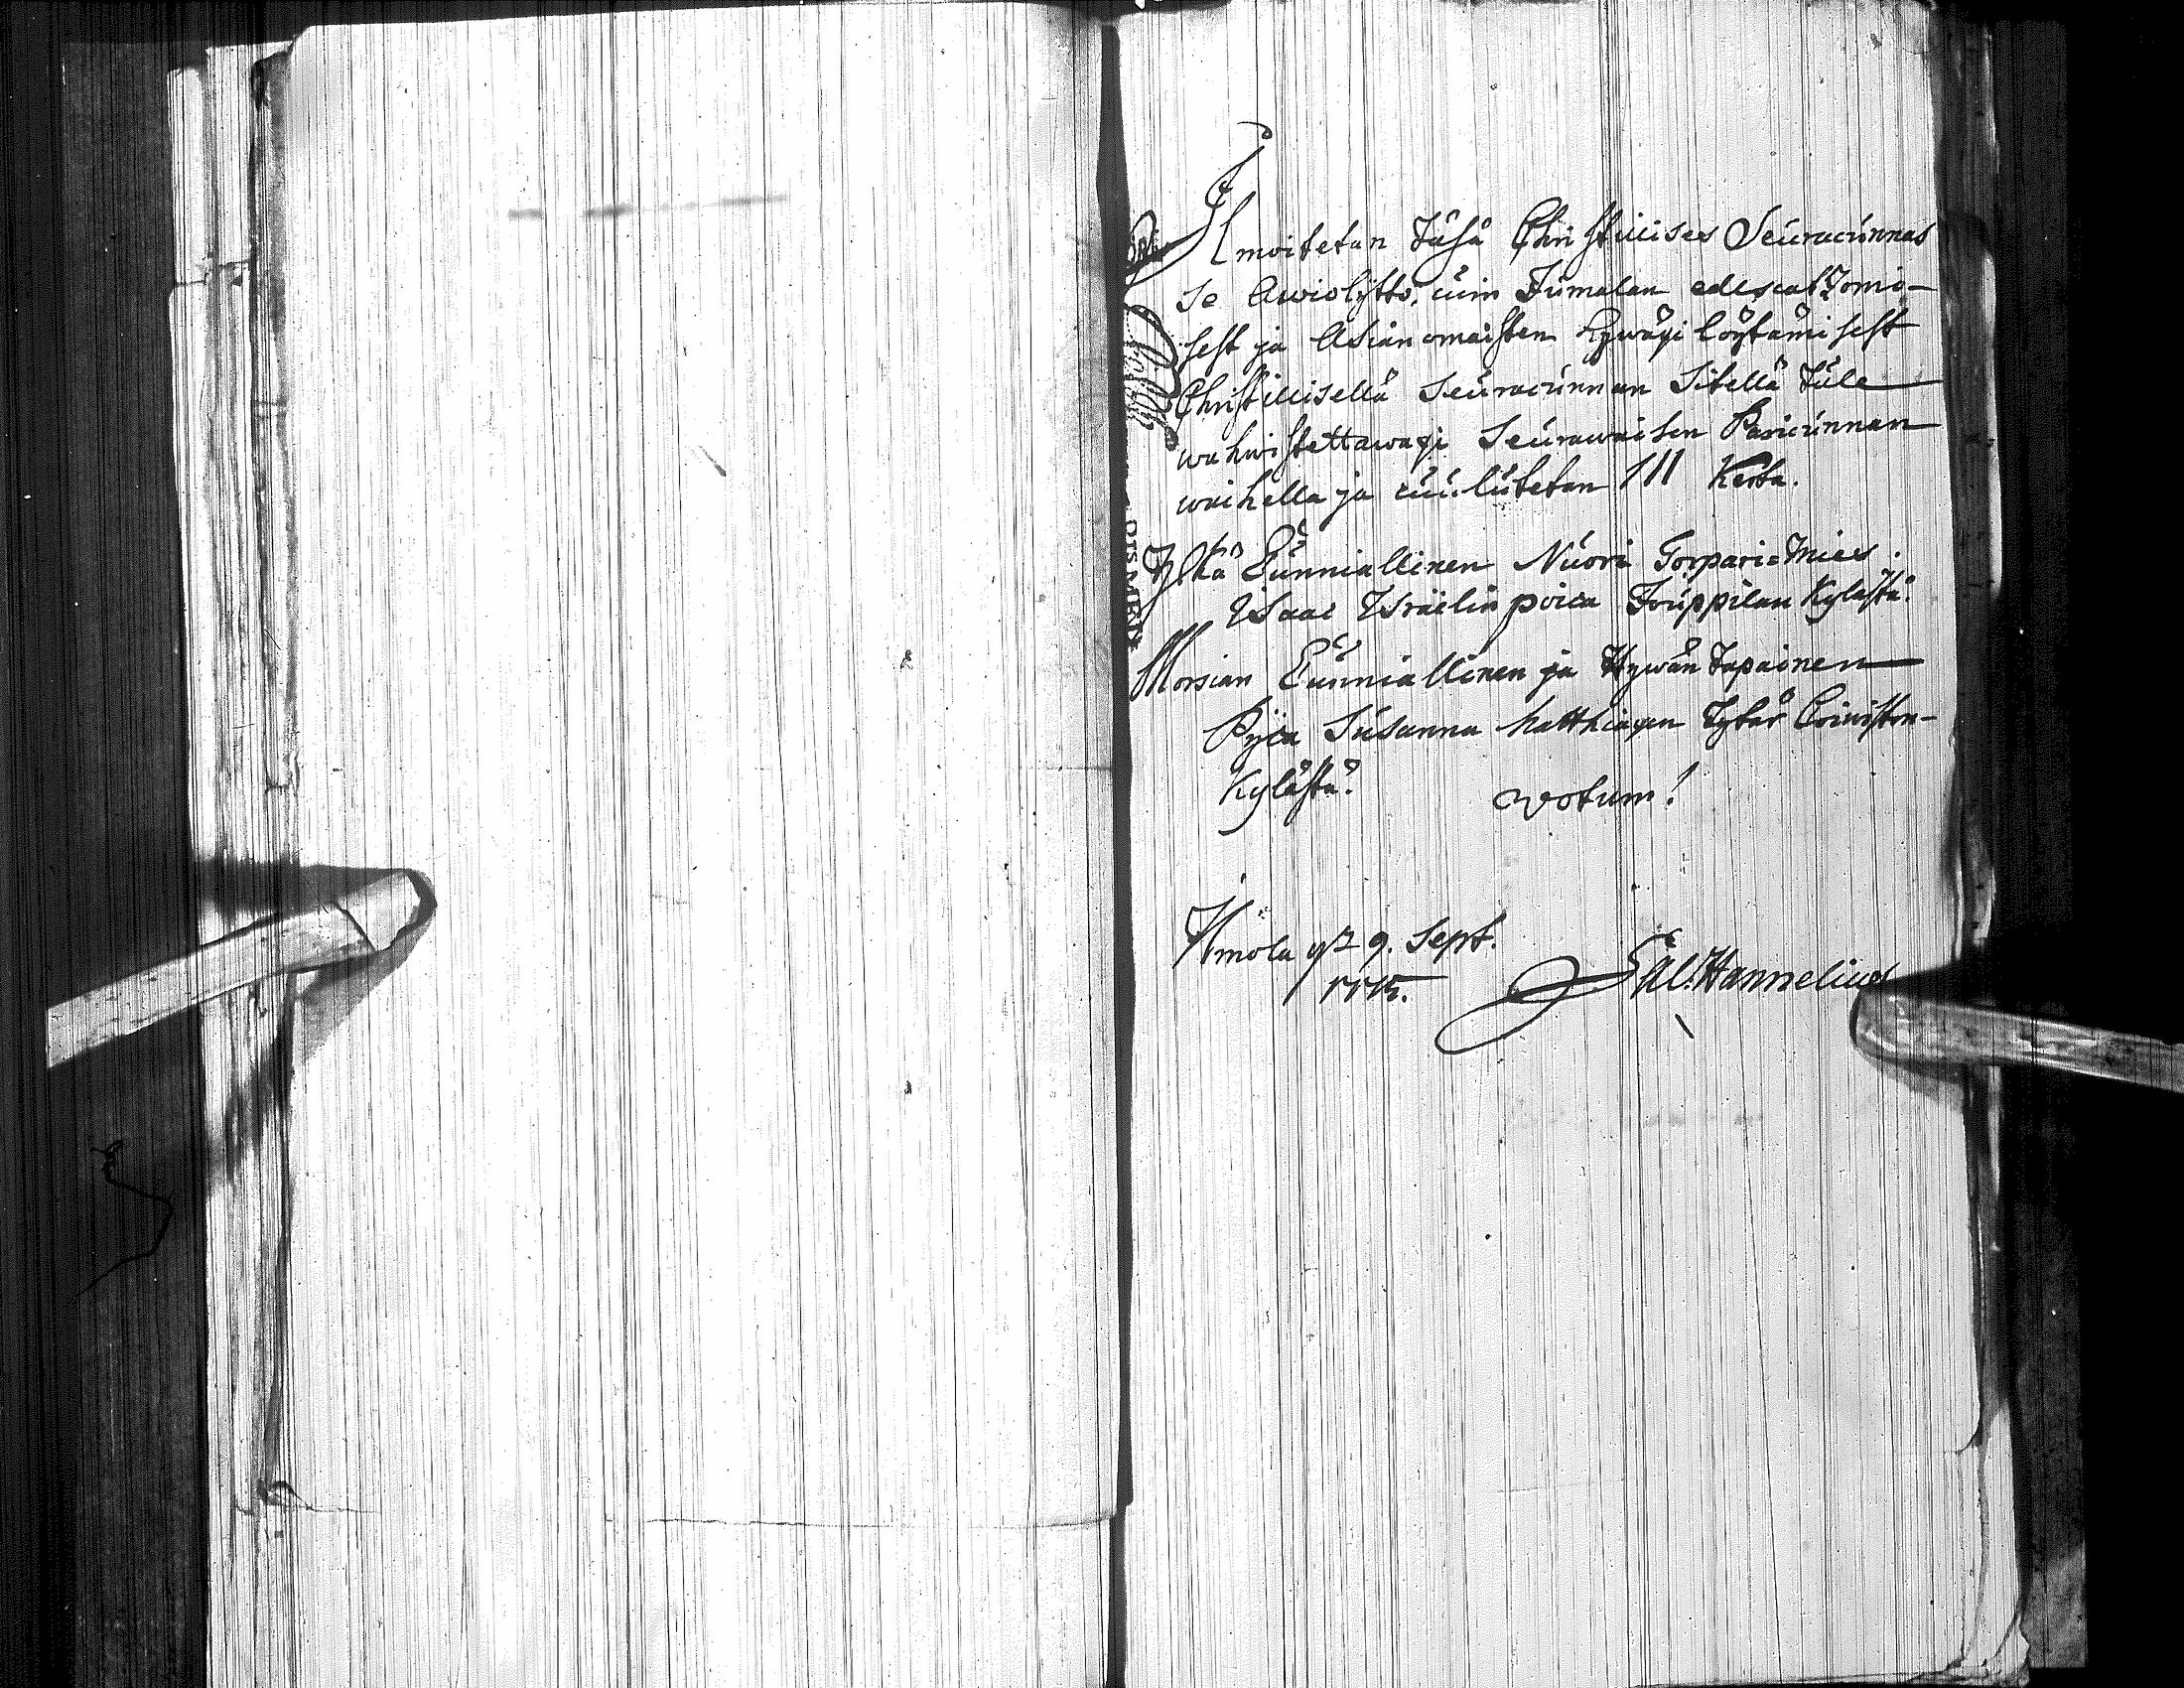 Ilmoitetan Täsä Christillises Seuracunnas
se Awiolijtto, cuin Jumalan edescatzomi-
sest ja Asian omaisten hywäxi löytämisest
Christillisellä Seuracunnan Sitellä tule
wahwistettawaxi Seurawaisen Paricunnan
waihella ja cuulutetan III Kerta.
Ylkä Cunniallinen Nuori Torpari-Mies
Isaac Israelin poica Jouppilan Kylästä.
Morsian Cunniallinen ja Hywän Tapainen
Pijca Susanna Matthiaxen Tytär Coiwiston-
Kylästä.
Votum!
Ilmola 9. Sept.
Sal. Hannelius